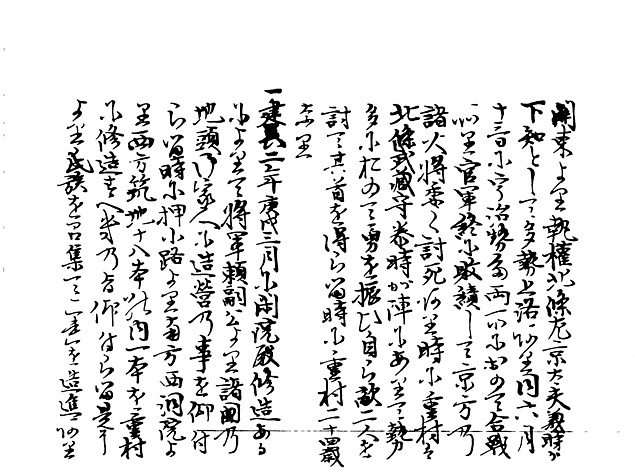 関東より執権北條左京大夫義時が
下知として多勢上洛に及里同六月
十三日に宇治勢多両所におゐて合戦
に及里官軍終に敗績して京方乃
諸大将悉く討死に及里時に重村は
北條武蔵守泰時が陣にありて勢
多におゐて勇を振ひ自ら敵二人を
討て其首を得らる時に重村二十四歳
なり
一建長二年庚戌三月に閑院殿修造ある
により将軍頼嗣公より諸国乃
地頭御家人に造営乃事を仰付
らる時に押小路より南方西洞院よ
里西方築地十八本の内一本を重村
に修造すべき乃旨仰付らる是
より民族を召集て造進